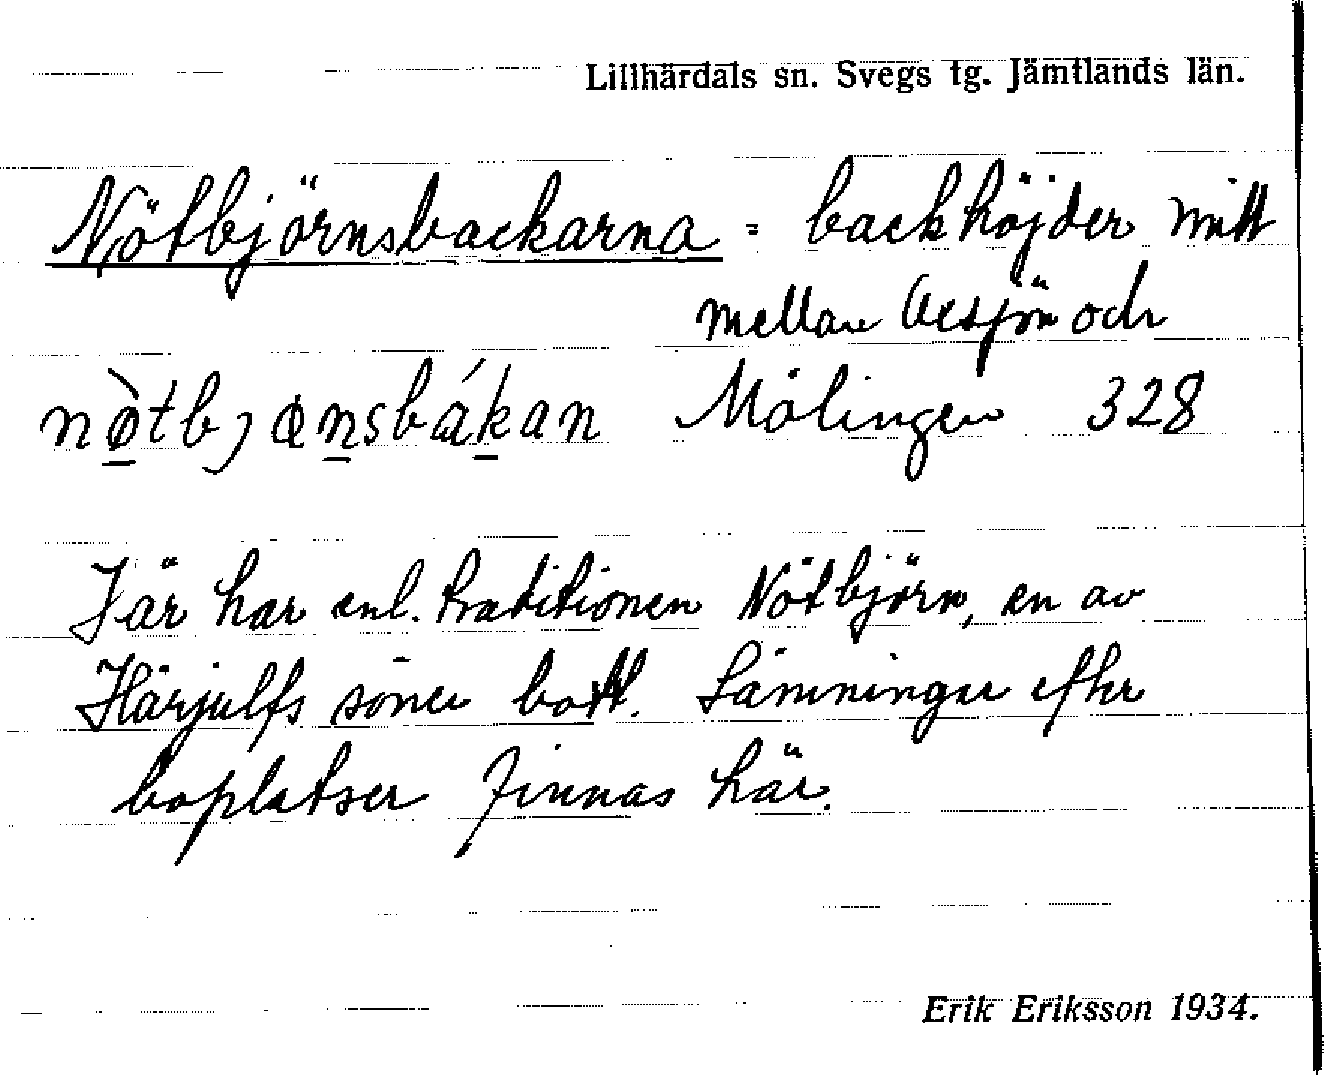 Lillhärdals sn. Svegs tg. Jämtlands län.
Nötbjörnsbackarna = backhöjder mitt
mellan Öesjön och
nø̀tbjønsbákan Mölingen 328
Här har enl. traditionen Nötbjörn, en av
Härjulfs söner bott. Lämningar efter
boplatser finnas här.
Erik Eriksson 1934.